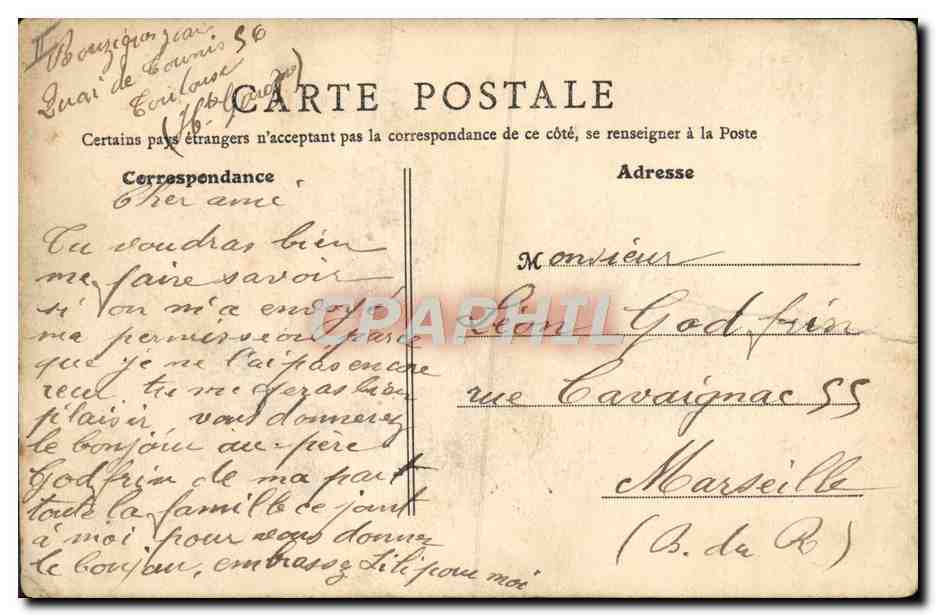 II Bouzigues Jean
Quai de Tounis 56
Toulouse
(Hte Garonne)
CARTE POSTALE
Certains pays étrangers n'acceptant pas la correspondance de ce côté, se renseigner à la Poste
Correspondance
Cher ami
Tu voudras bien
me faire savoir
si on m'a envoyé
ma permission parce
que je ne l'ai pas encore
reçu tu me feras bien
plaisir vous donnerez
le bonjour au père
Godfrin de ma part
toute la famille ce joint
à moi pour vous donner
le bonjour, embrassez Lili pour moi
Adresse
Monsieur
Léon Godfrin
rue Cavaignac 55
Marseille
(B. du R)
CPAPHIL